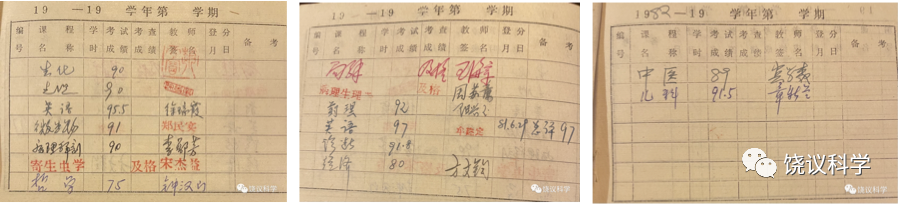 19 —19 学年第 学期
编号 课程名称 学时 考试成绩 考查成绩 教师签名 登分月日 备考
生化 90
生理 90
英语 95.5
微生物 91
病理解剖 90
寄生虫学 及格 宋杰
哲学 75
饶议科学
19 —19 学年第 学期
编号 课程名称 学时 考试成绩 考查成绩 教师签名 登分月日 备考
及格
病理生理 及格
药理 92
英语 97 81.6.29 总评97
诊断 91.8
经济 80
饶议科学
1982—19 学年第 学期
编号 课程名称 学时 考试成绩 考查成绩 教师签名 登分月日 备考
中医 89
儿科 91.5
饶议科学